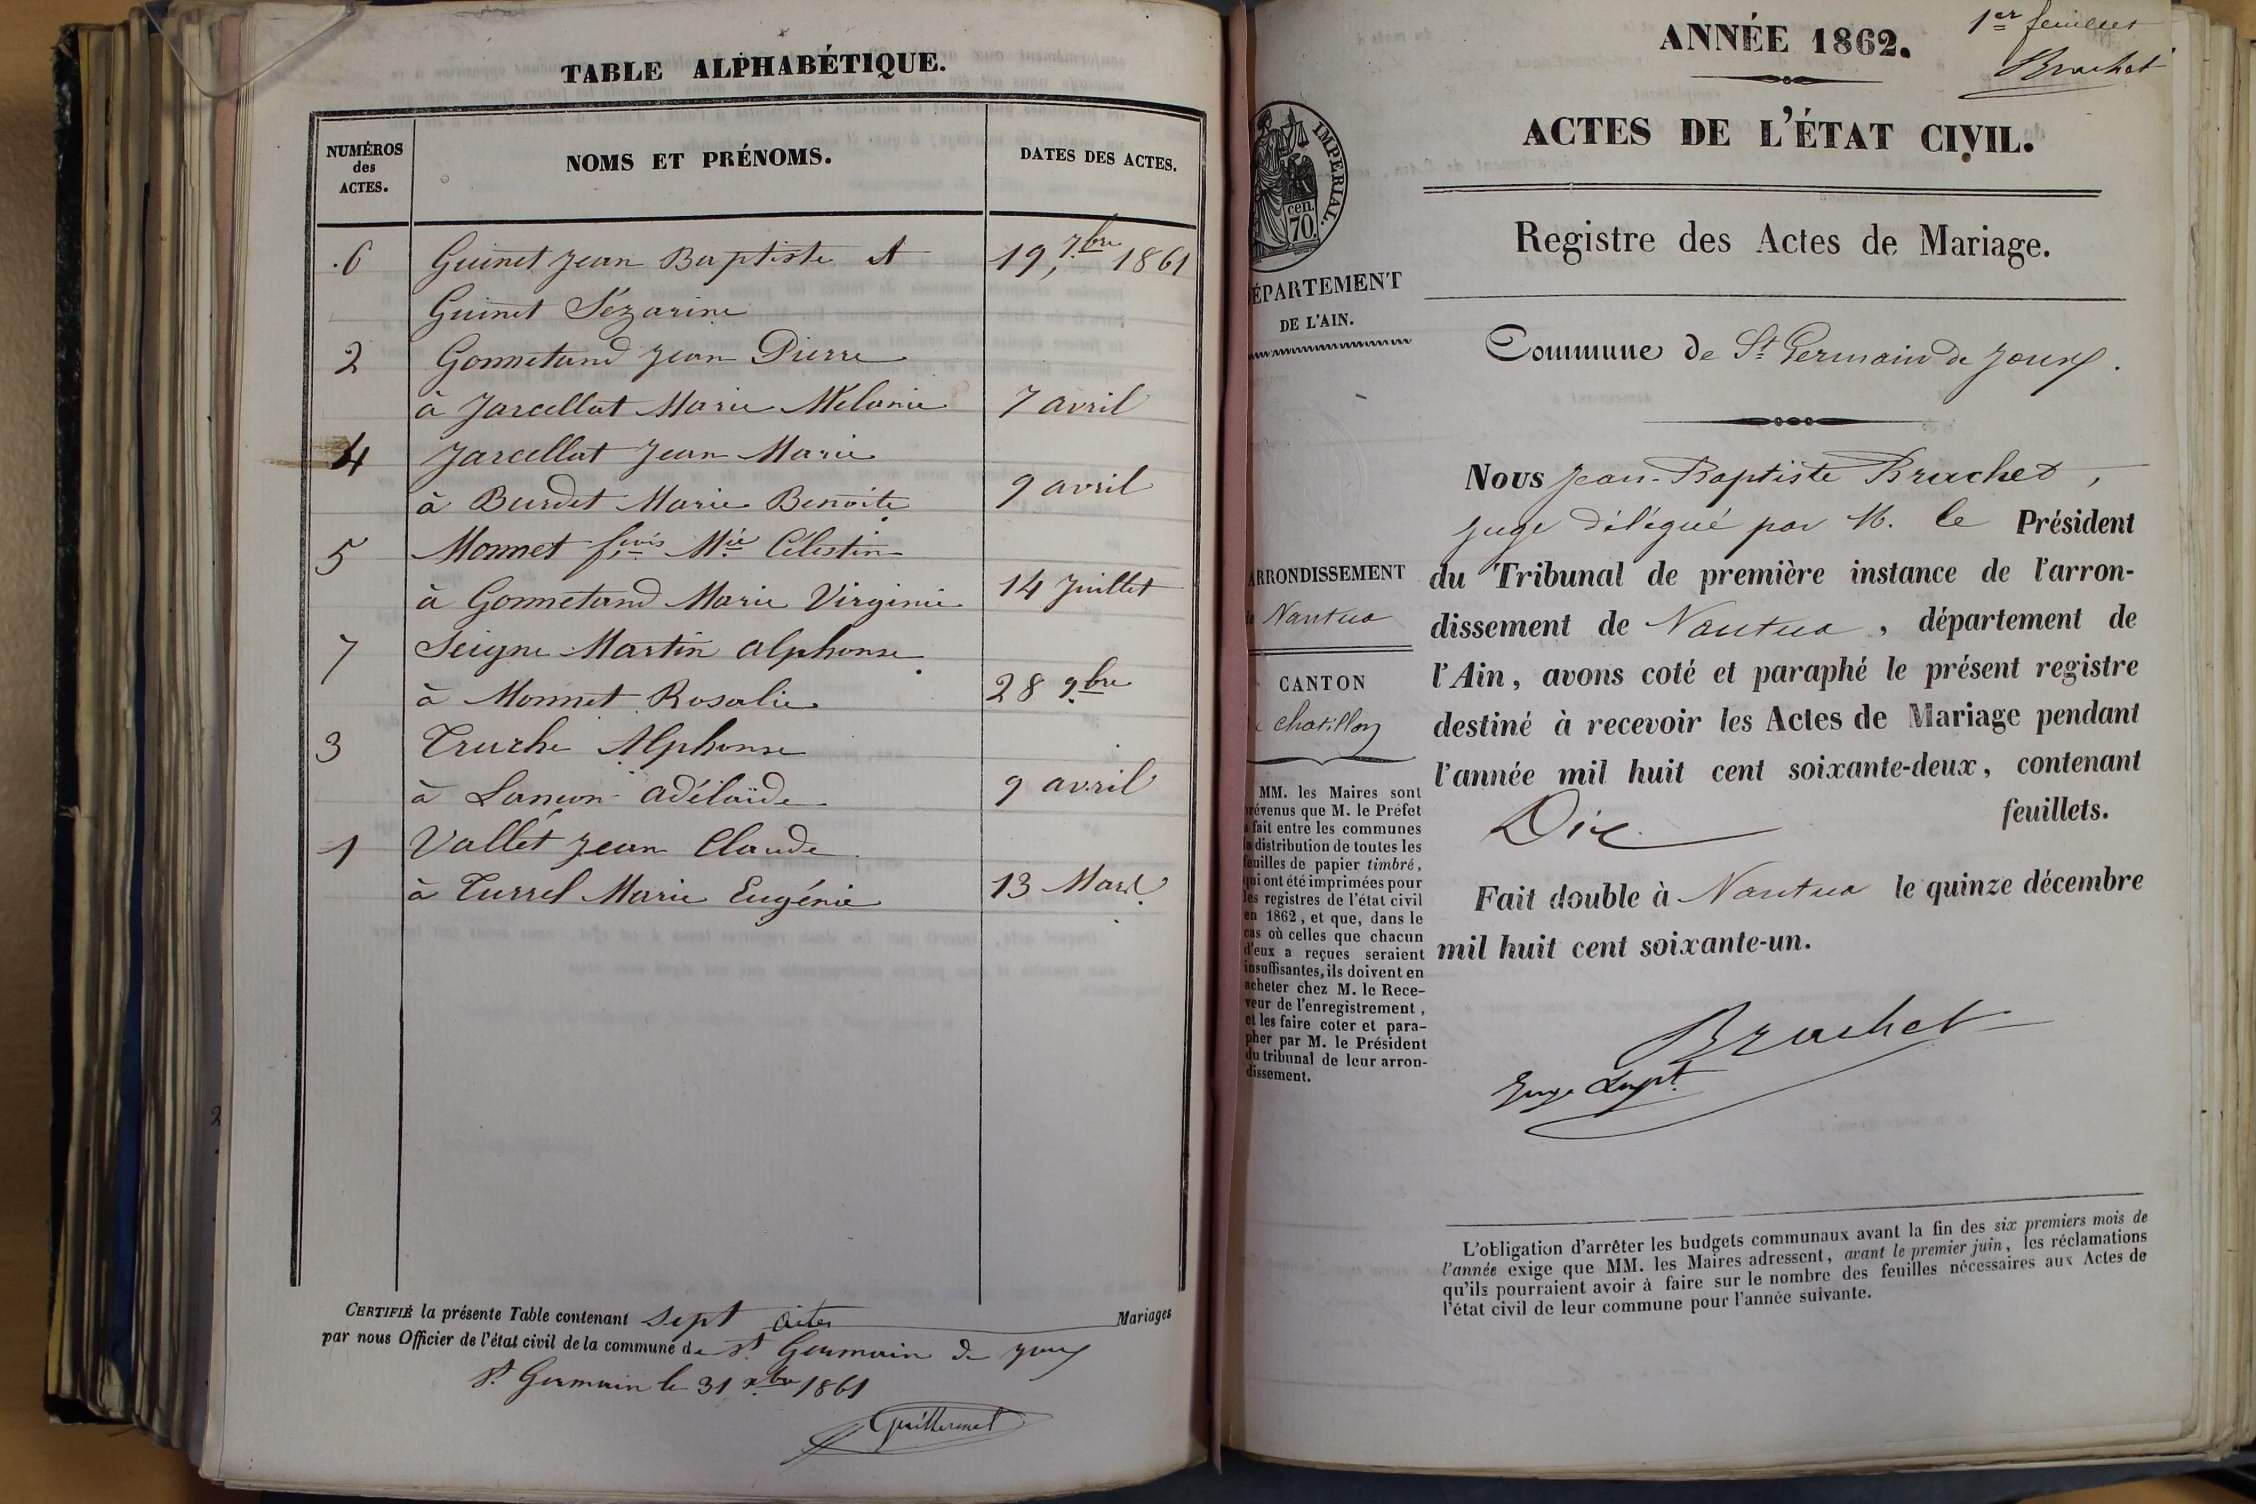 TABLE ALPHABÉTIQUE.
NUMÉROS des ACTES. NOMS ET PRÉNOMS. DATES DES ACTES.
6 Guinet Jean Baptiste et 19 7bre 1861
Guinet Sézarine
2 Gonnetand Jean Pierre
à Jarcellat Marie Mélanie 7 avril
4 Jarcellat Jean Marie
à Burdet Marie Benoite 9 avril
5 Monnet fçois Mie Célestin
à Gonnetand Marie Virginie 14 Juillet
7 Seigne Martin Alphonse
à Monnet Rosalie 28 9bre
3 Truche Alphonse
à Lançon Adélaïde 9 avril
1 Vallet Jean Claude
à Turrel Marie Eugénie 13 Mars
CERTIFIÉ la présente Table contenant sept actes Mariages
par nous Officier de l'état civil de la commune de St Germain de Joux
St Germain le 31 xbre 1861
Guillermet
1er feuillet
Brachet
ANNÉE 1862.
ACTES DE L'ÉTAT CIVIL.
Registre des Actes de Mariage.
IMPERIAL.
cen.
70.
DÉPARTEMENT
DE L'AIN.
Commune de St Germain de Joux.
Nous Jean-Baptiste Brachet,
juge délégué par M. le Président
du Tribunal de première instance de l'arron-
dissement de Nantua, département de
l'Ain, avons coté et paraphé le présent registre
destiné à recevoir les Actes de Mariage pendant
l'année mil huit cent soixante-deux, contenant
Dix feuillets.
Fait double à Nantua le quinze décembre
mil huit cent soixante-un.
Brachet
Juge Suppt.
ARRONDISSEMENT
de Nantua
CANTON
de Chatillon
MM. les Maires sont
prévenus que M. le Préfet
a fait entre les communes
la distribution de toutes les
feuilles de papier timbré,
qui ont été imprimées pour
les registres de l'état civil
en 1862, et que, dans le
cas où celles que chacun
d'eux a reçues seraient
insuffisantes, ils doivent en
acheter chez M. le Rece-
veur de l'enregistrement,
et les faire coter et para-
pher par M. le Président
du tribunal de leur arron-
dissement.
L'obligation d'arrêter les budgets communaux avant la fin des six premiers mois de
l'année exige que MM. les Maires adressent, avant le premier juin, les réclamations
qu'ils pourraient avoir à faire sur le nombre des feuilles nécessaires aux Actes de
l'état civil de leur commune pour l'année suivante.